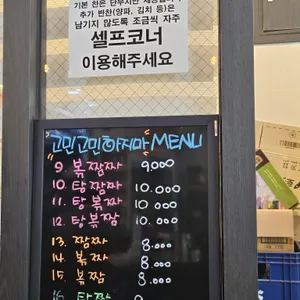 기본 찬은 단무지만 제공됩니다
추가 반찬(양파, 김치 등)은
남기지 않도록 조금씩 자주
셀프코너
이용해주세요
"고민고민하지마" MENU
9. 볶짬짜 9.000
10. 탕짬짜 10.000
11. 탕볶짜 10.000
12. 탕볶짬 10.000
13. 짬짜 8.000
14. 볶짜 8.000
15. 볶짬 8.000
16. 탕짜